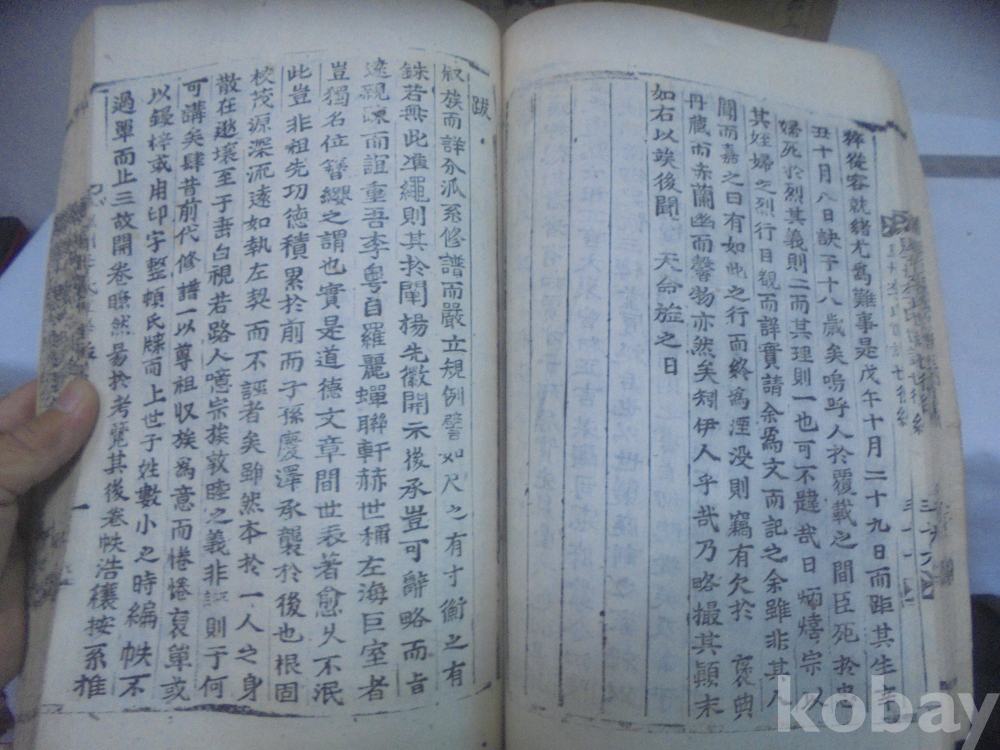 粹從容就緖尤爲難事是戊午十月二十九日而距其生辛
丑十月八日訣于十八歲矣嗚呼人於覆載之間臣死於忠
婦死於烈其義則二而其理則一也可不韙哉日炳熺宗人
其姪婦之烈行目覩而詳實請余爲文而記之余雖非其人
聞而嘉之曰有如此之行而終爲湮没則竊有欠於 褒典
丹藏而赤蘭幽而馨物亦然矣矧伊人乎哉乃略撮其顚末
如右以竢後聞 天命 之日
跋
収族而詳分派系修譜而嚴立規例譬如尺之有寸衡之有
銖若無此准繩則其於闡揚先徽開示後承豈可辭略而旨
遠親踈而誼重吾李粤自羅麗蟬聯軒赫世稱左海巨室者
豈獨名位簪纓之謂也實是道德文章間世表著愈久不泯
此豈非祖先功德積累於前而子孫慶澤承襲於後也根固
枝茂源深流遠如執左契而不誣者矣雖然本於一人之身
散在遐壤至于吾白視若路人噫宗族敦睦之義非 則于何
可講矣肆昔前代修譜一以尊祖収族爲意而惓惓裒單或
以鋟梓或用印字整頓氏牒而上世子姓數小之時編帙不
過單而止三故開卷瞭然易於考覽其後卷帙浩穰按系推
kobay